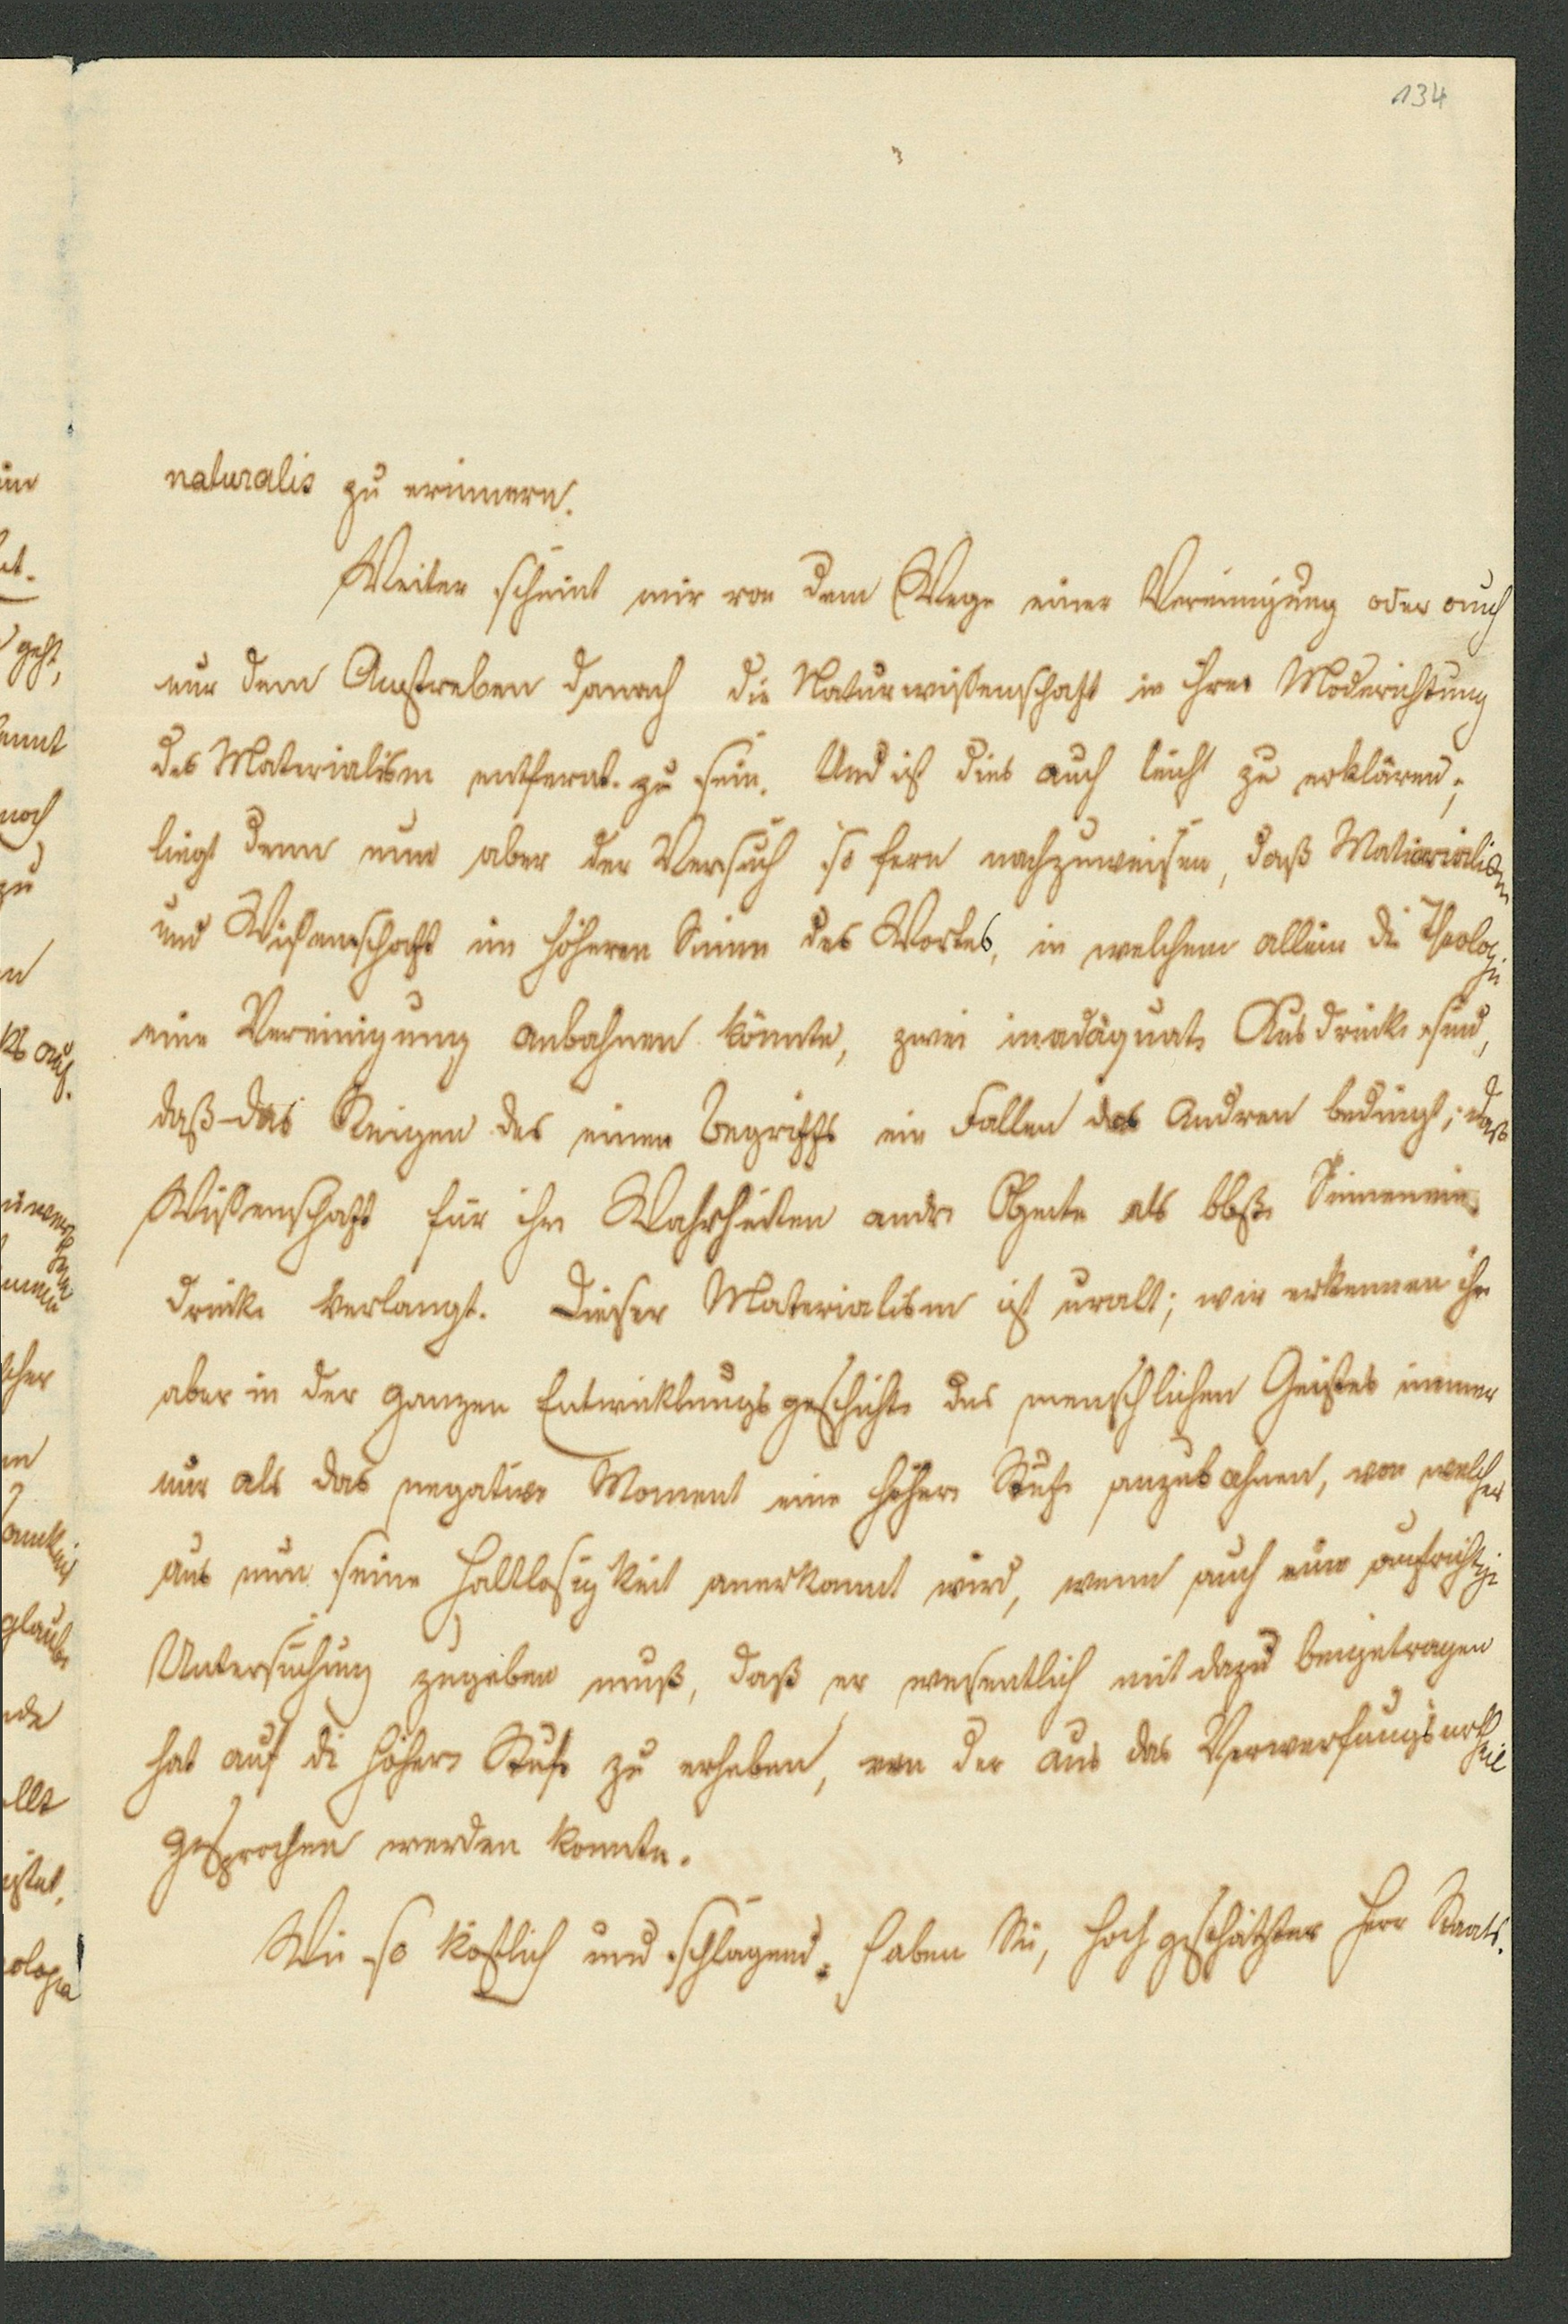 134
naturalis zu erinnern.
Weiter scheint mir von dem Wege einer Vereinigung oder auch
nur dem Anstreben danach die Naturwissenschaft in ihrer Moderichtung
des Materialism entfernt zu sein. Und ist dies auch leicht zu erklären;
liegt denn nun aber der Versuch so fern nachzuweisen, daß Materialism
und Wissenschaft im höheren Sinne des Wortes, in welchem allein die Theologie
eine Vereinigung anbahnen könnte, zwei inadäquate Ausdrücke sind,
daß das Steigen des einen Begriffs ein Fallen des Andren bedingt; daß
Wissenschaft für ihre Wahrheiten andre Objecte als bloße Sinnenein
drücke verlangt. Dieser Materialism ist uralt; wir erkennen ihn
aber in der ganzen Entwicklungsgeschichte des menschlichen Geistes immer
nur als das negative Moment eine höhere Stufe anzubahnen, von welcher
aus nun seine Haltlosigkeit anerkannt wird, wenn auch eine aufrichtige
Untersuchung zugeben muß, daß er wesentlich mit dazu beigetragen
hat auf die höhere Stufe zu erheben, von der aus das Verwerfungsurtheil
gesprochen werden konnte.
Wie so köstlich und schlagend haben Sie, hochgeschätzter Herr Staats.